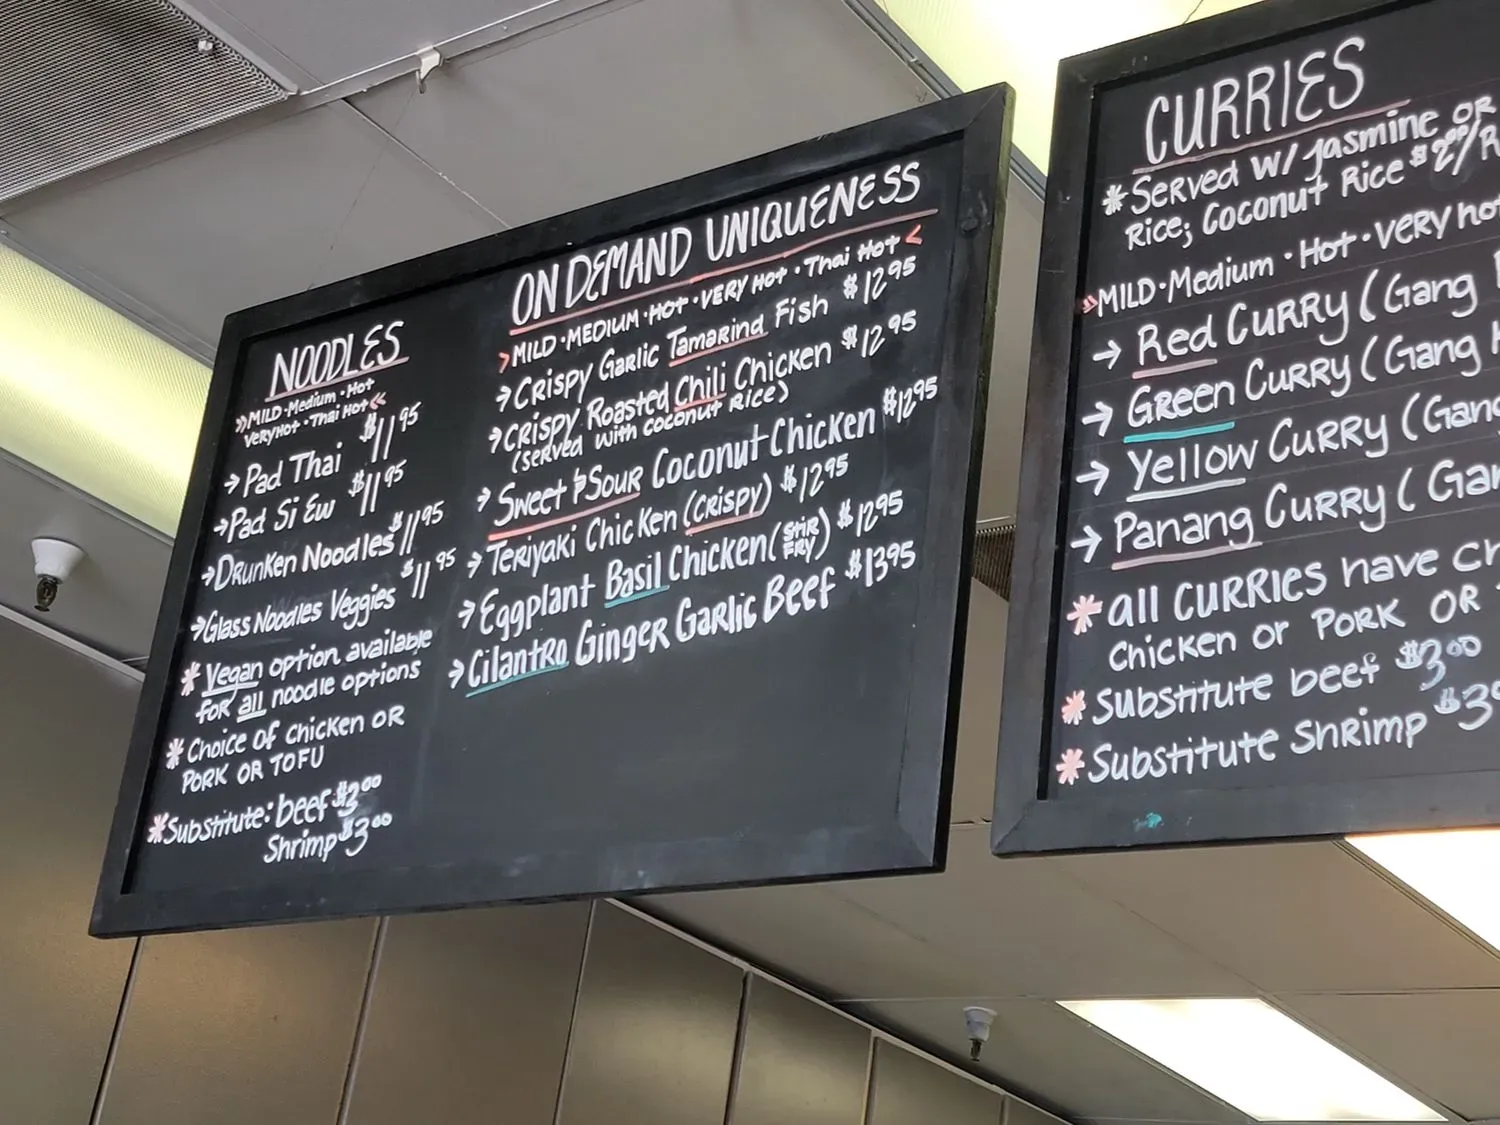 NOODLES
»MILD·Medium·Hot
VERYHOT·Thai HOT«
→Pad Thai $11 95
→Pad Si Ew $11 95
→DRUNKEN NOODLES $11 95
→Glass Noodles Veggies $11 95
* Vegan option available
for all noodle options
* Choice of chicken OR
PORK OR TOFU
* Substitute: beef $3 00
Shrimp $3 00
ON DEMAND UNIQUENESS
> MILD·MEDIUM·HOT·VERY HOT·Thai HOT <
→CRISPY GARLIC Tamarind Fish $12 95
→CRISPY Roasted Chili Chicken $12 95
(served with coconut Rice)
→Sweet & Sour Coconut Chicken $12 95
→TERiyaki Chicken (CRISPY) $12 95
→Eggplant Basil Chicken (STIR FRY) $12 95
→Cilantro GiNGER GaRLic BeeF $13 95
CURRIES
* Served W/ Jasmine OR
Rice; Coconut Rice $2 00/R
»MILD·Medium·Hot·VERY hot
→ Red CURRY (Gang
→ GReen CURRY (Gang
→ Yellow CURRY (Gang
→ Panang CURRY (Gan
* all CURRIES have Ch
Chicken or PORK OR
* Substitute beef $3 00
* Substitute Shrimp $3